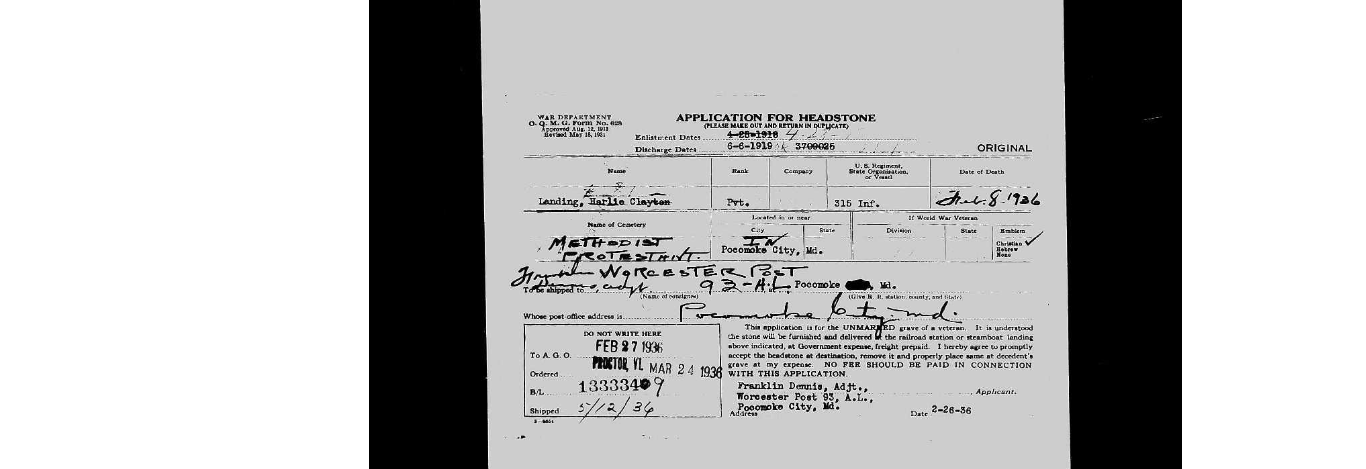 WAR DEPARTMENT
O. Q. M. G. Form No. 623
Approved Aug. 12, 1912
Revised May 15, 1931
APPLICATION FOR HEADSTONE
(PLEASE MAKE OUT AND RETURN IN DUPLICATE)
Enlistment Dates 4-28-1918
Discharge Dates 6-6-1919 3709025
ORIGINAL
Name Rank Company U. S. Regiment, State Organization, or Vessel Date of Death
Landing, Harlie Clayton Pvt. 315 Inf. Feb. 8. 1936
Name of Cemetery Located in or near If World War Veteran
City State Division State Emblem
METHODIST PROTESTANT. IN Pocomoke City, Md. Christian Hebrew None
Franklin WORCESTER POST
To be shipped to Dennis, adjt 93-A.L. Pocomoke , Md.
(Name of consignee) (Give R. R. station, county, and State)
Whose post office address is Pocomoke City, md.
DO NOT WRITE HERE
To A. G. O. FEB 27 1936
Ordered PROCTOR, VT. MAR 24 1936
B/L 1333349
Shipped 5/12/36
This application is for the UNMARKED grave of a veteran. It is understood
the stone will be furnished and delivered at the railroad station or steamboat landing
above indicated, at Government expense, freight prepaid. I hereby agree to promptly
accept the headstone at destination, remove it and properly place same at decedent's
grave at my expense. NO FEE SHOULD BE PAID IN CONNECTION
WITH THIS APPLICATION.
Franklin Dennis, Adjt., Applicant.
Worcester Post 93, A.L.,
Pocomoke City, Md.
Address Date 2-26-36